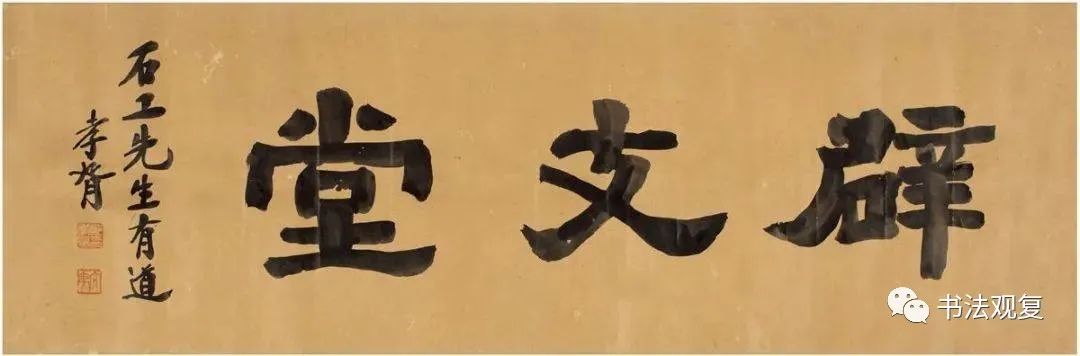 辟支堂
石工先生有道
孝胥
书法观复